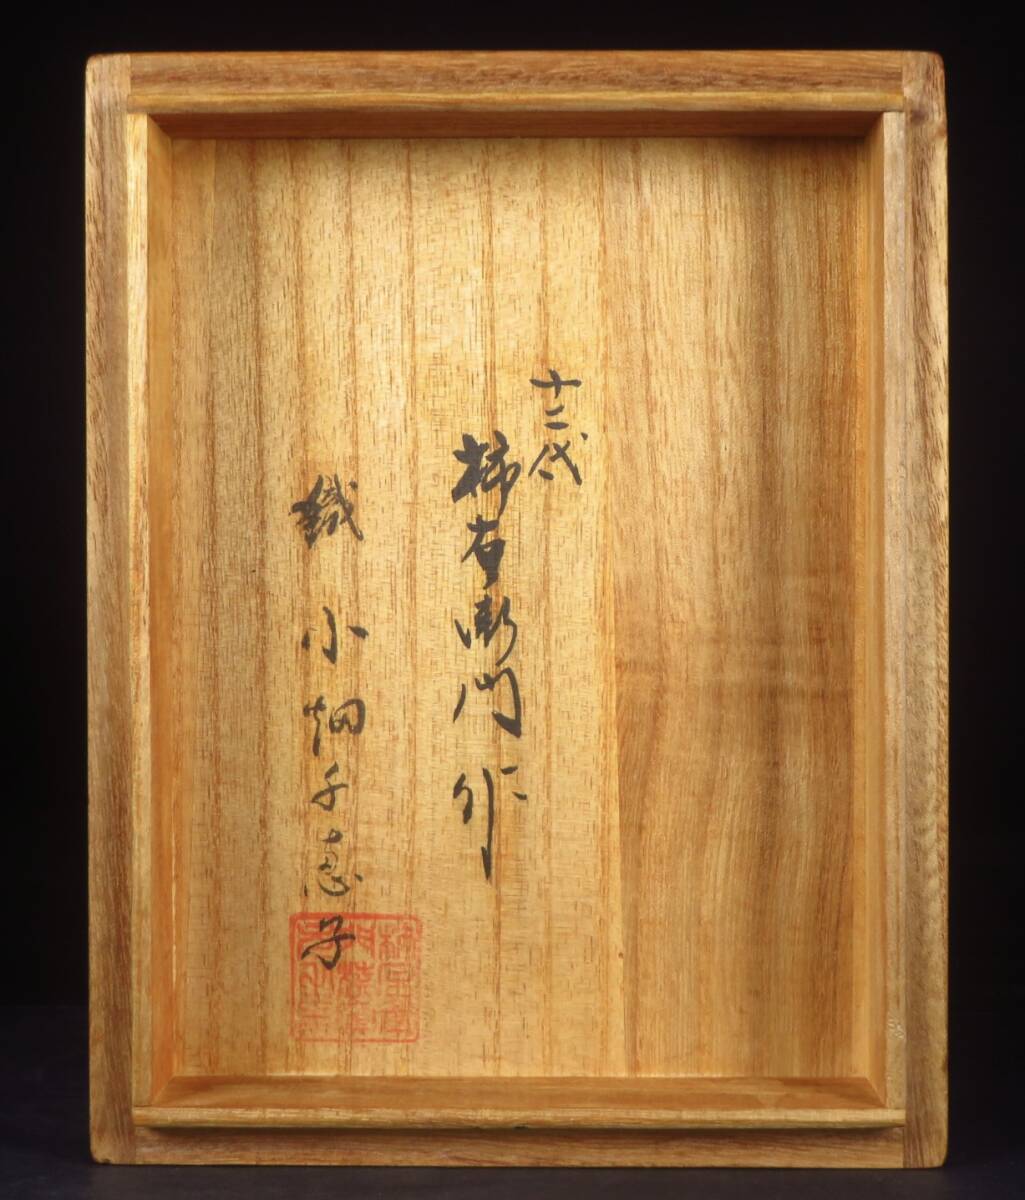 十二代
柿右衛門作
識 小畑千恵子